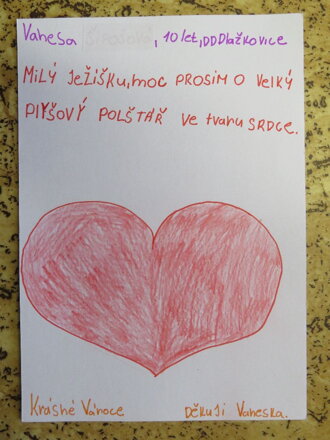 Vanesa , 10 let, DD Dlažkovice
Milý Ježíšku, moc prosím o velký
plyšový polštář ve tvaru srdce.
Krásné Vánoce
Děkuji Vaneska.